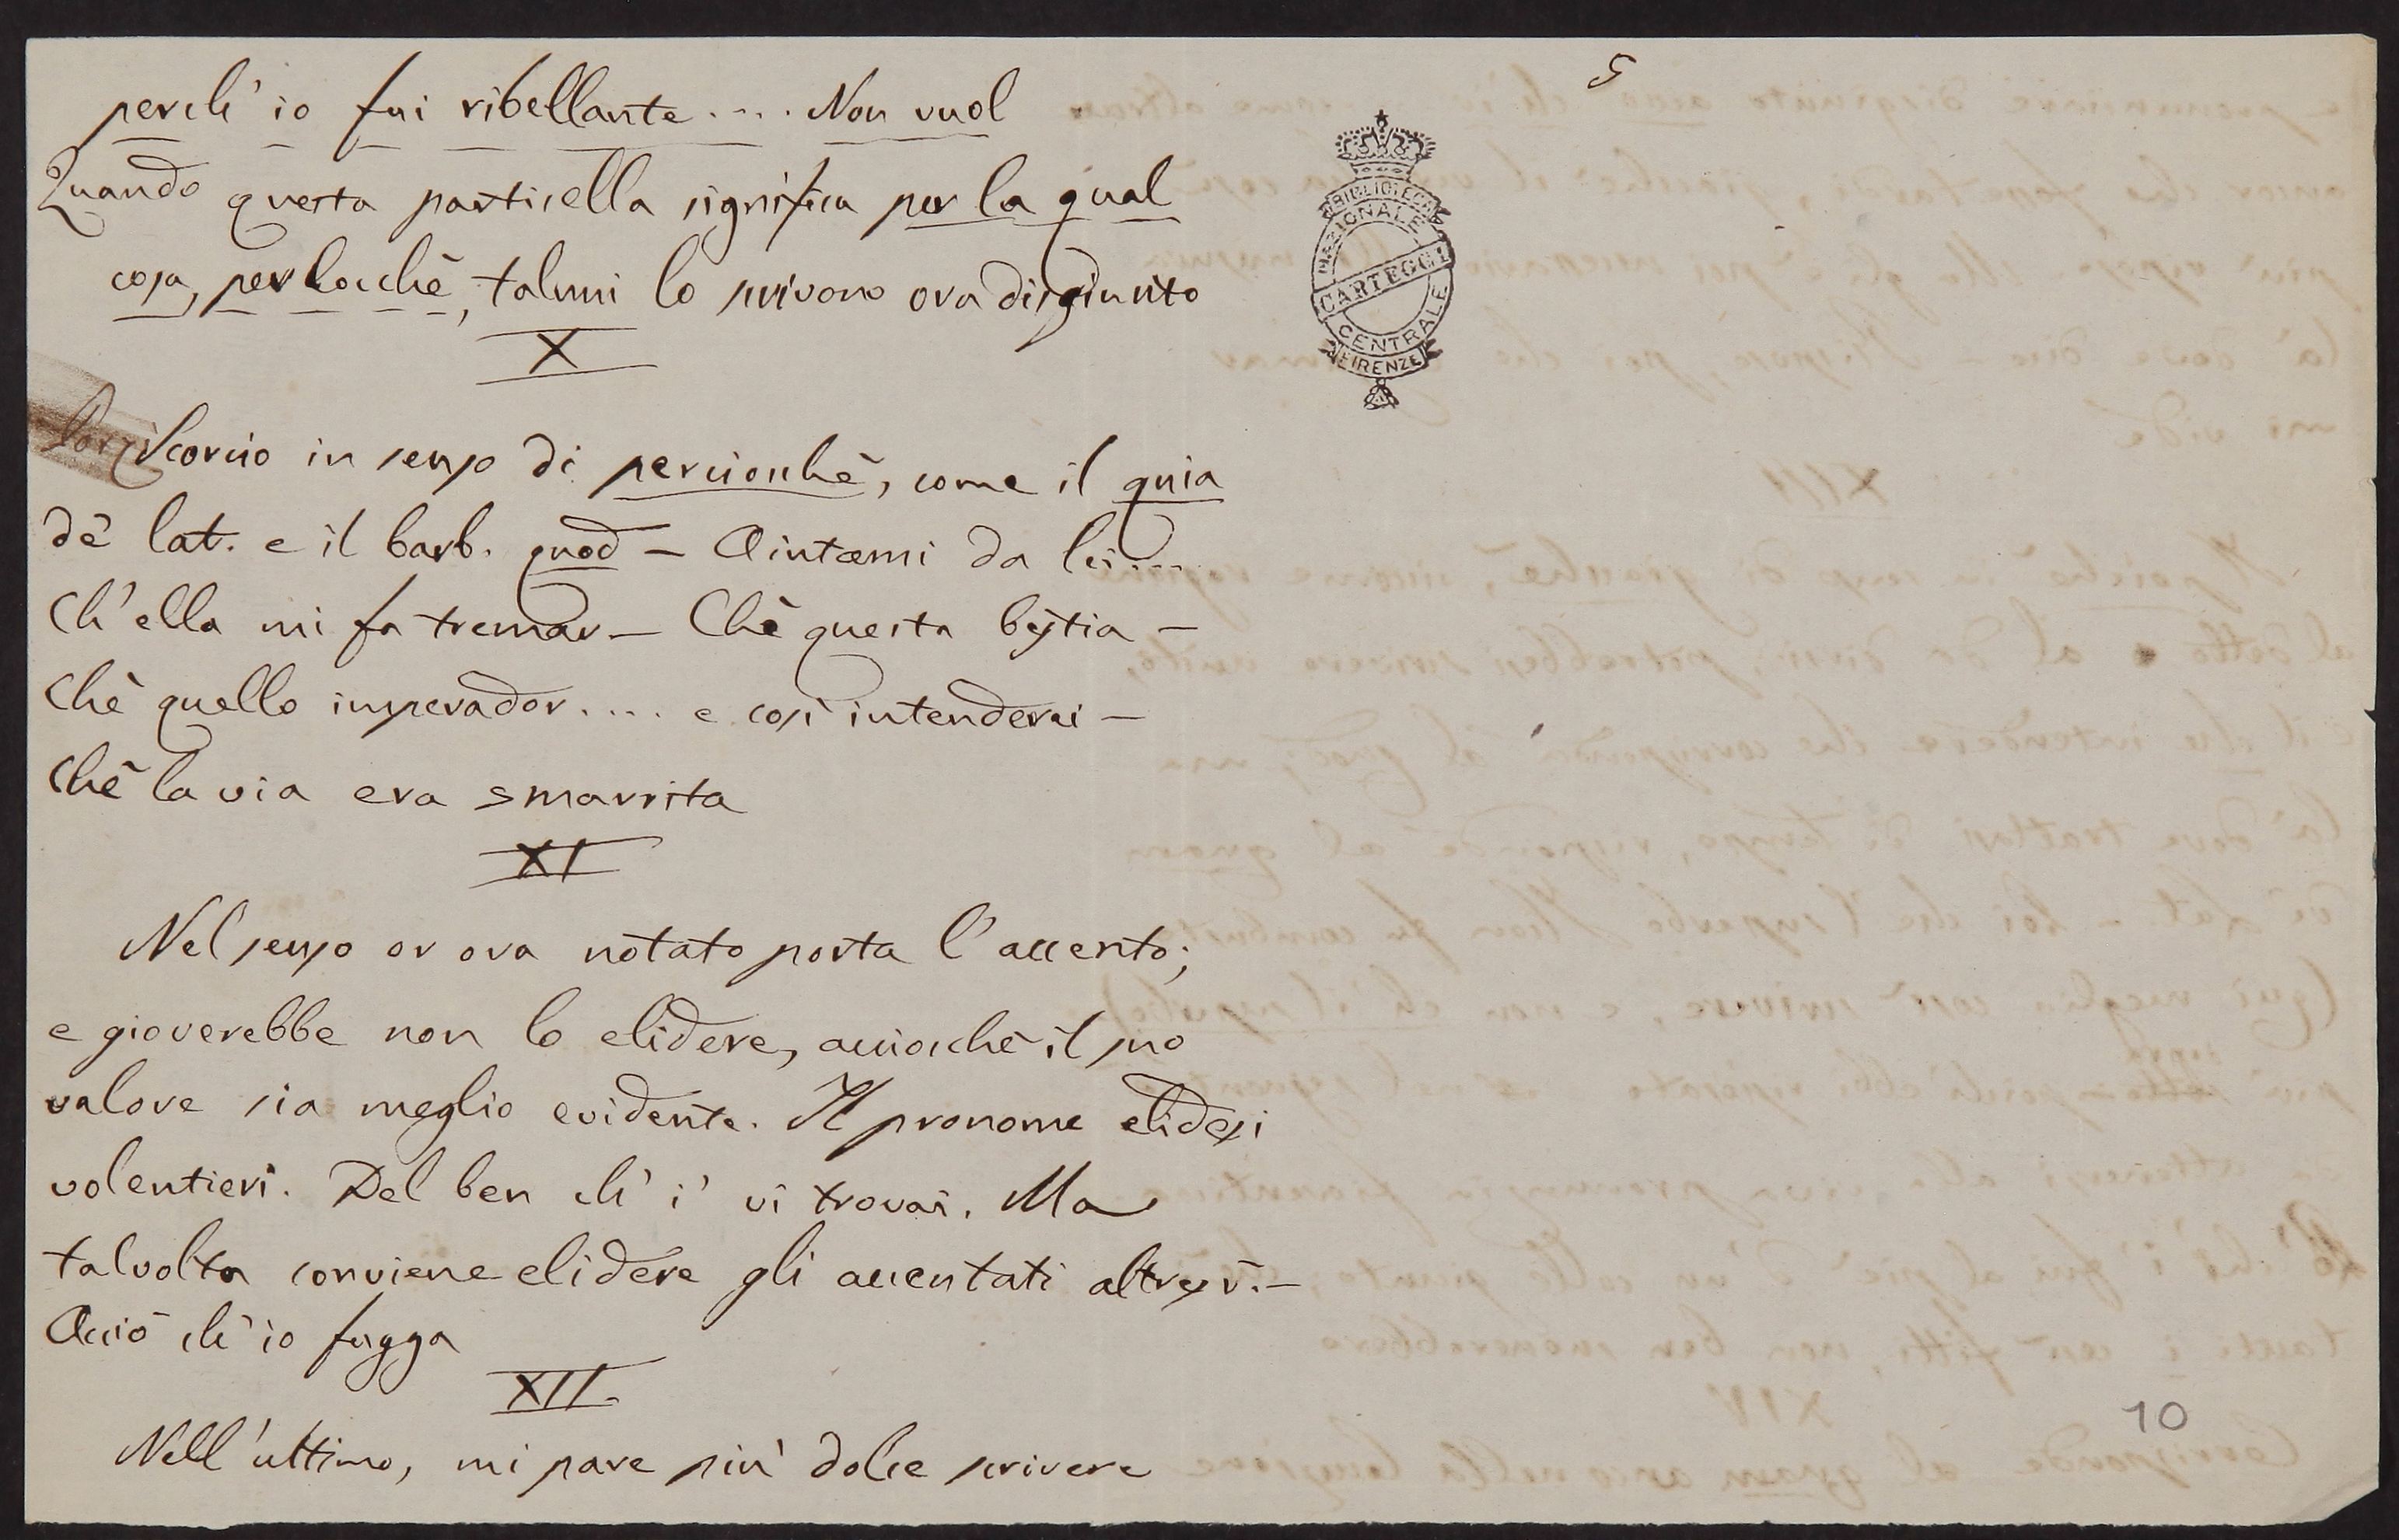 5
perch' io fui ribellante.... Non vuol
Quando questa particella significa per la qual
cosa, perlocchè, talmi lo scrivono ora disgiunto
X
Scorcio in senso di perciocchè, come il quia
de' lat. e il barb. quod – Aiutami da lei....
Ch'ella mi fa tremar – Chè questa bestia –
Chè quello imperador.... e così intenderei –
Chè la via era smarrita
XI
Nel senso or ora notato porta l'accento;
e gioverebbe non lo elidere, acciocchè il suo
valore sia meglio evidente. Il pronome elidesi
volentieri. Del ben ch' i' vi trovai. Ma
talvolta conviene elidere gli accentati altresì. –
Acciò ch' io fugga
XII
Nell'ultimo, mi pare più dolce scrivere
BIBLIOTECA
NAZIONALE
CARTEGGI
CENTRALE
FIRENZE
10